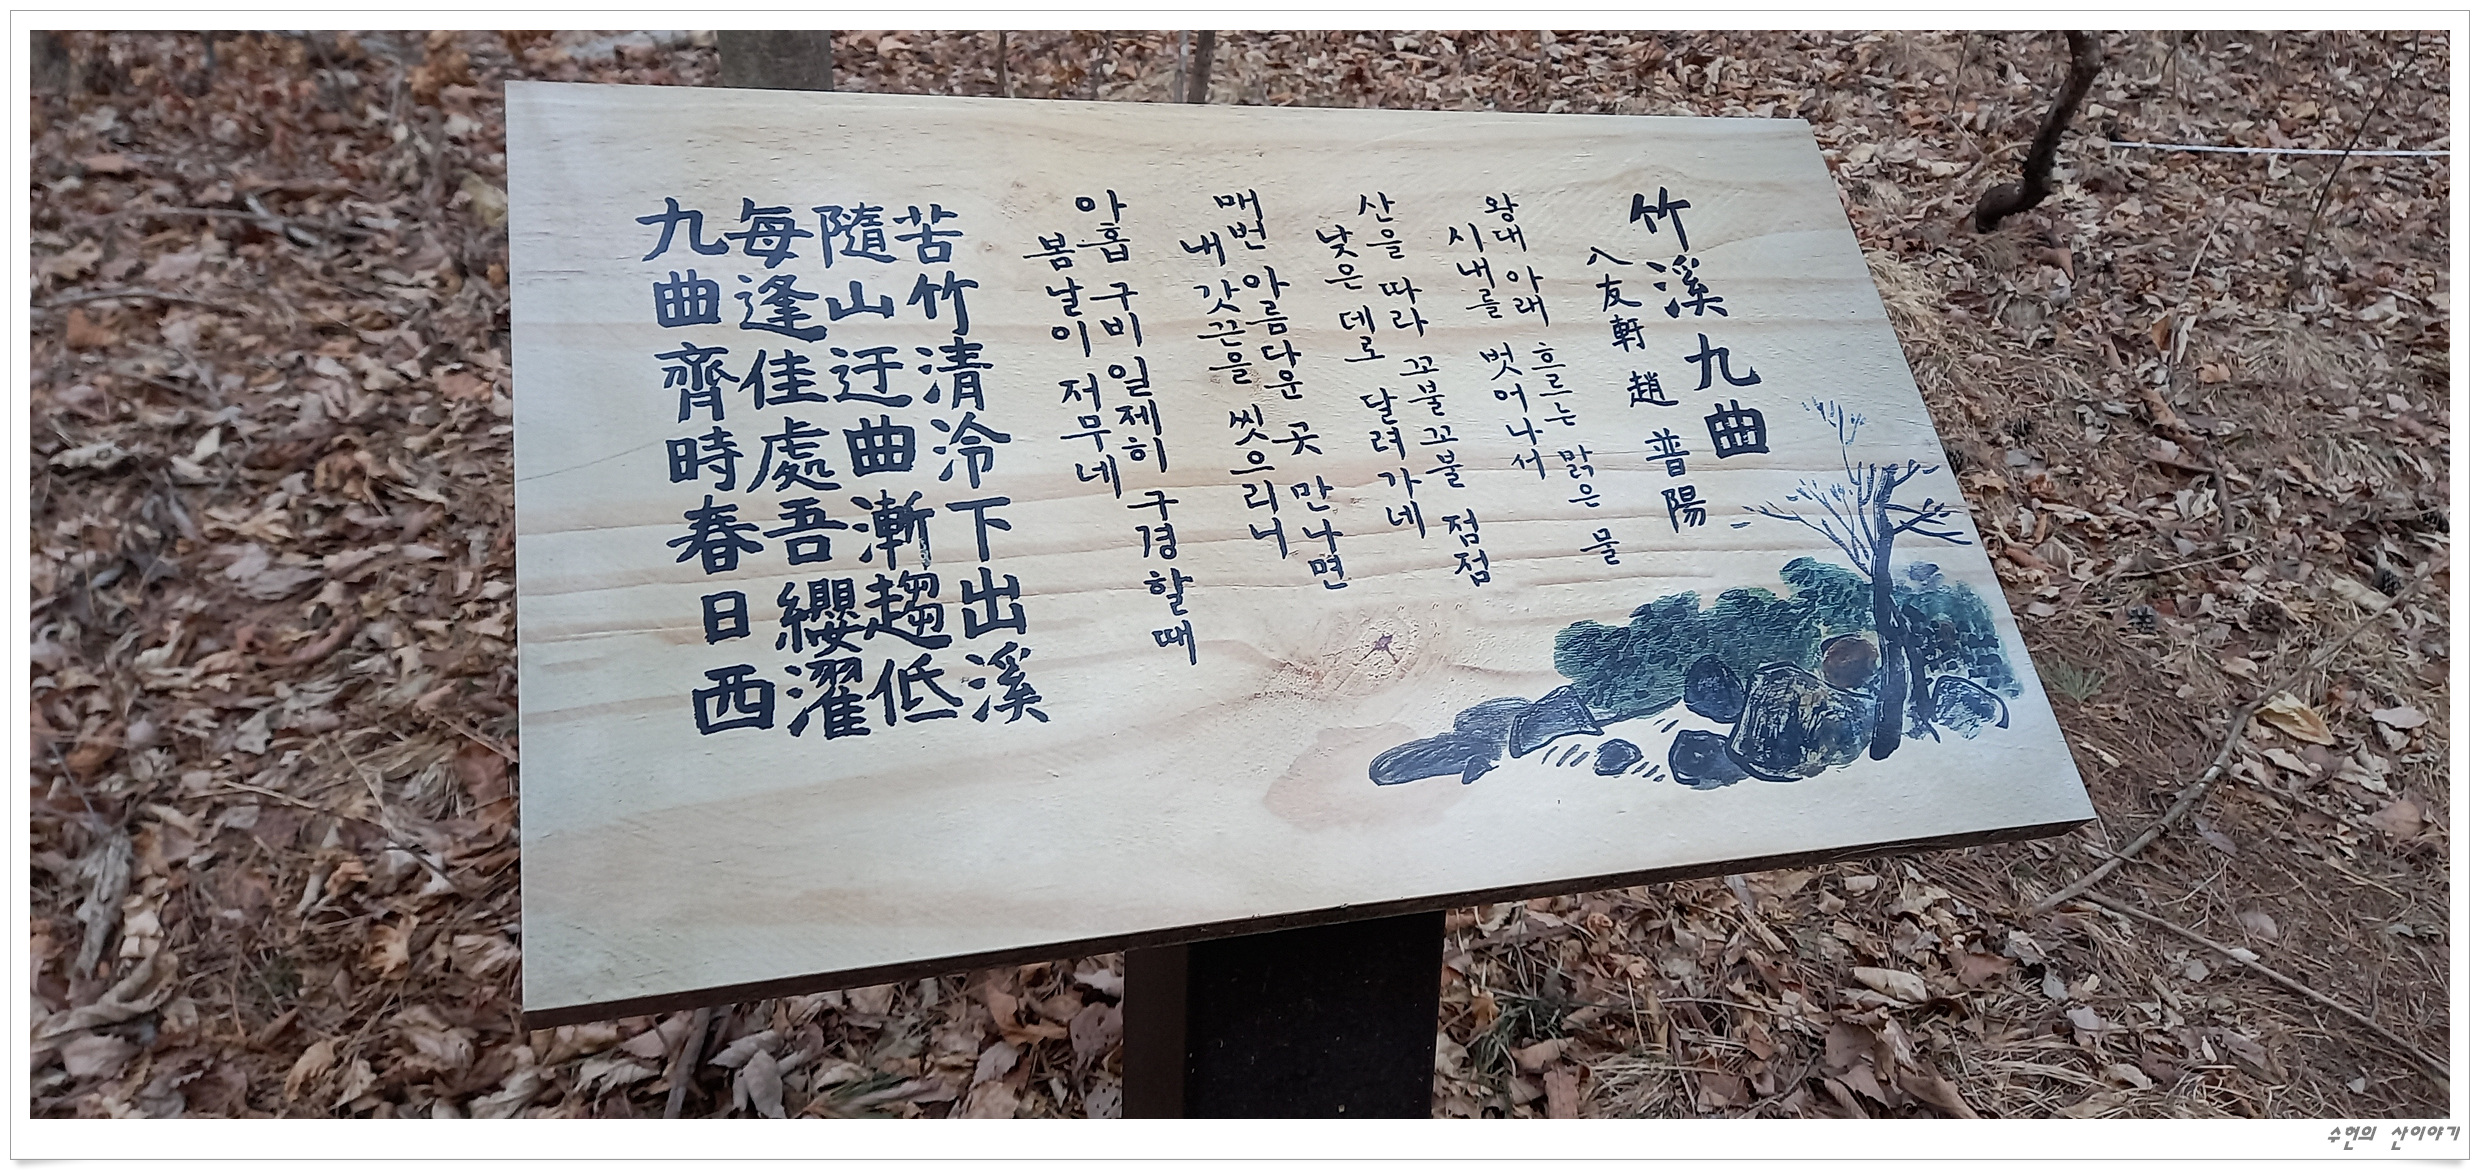 竹溪九曲
八友軒 趙普陽
왕대 아래 흐르는 맑은 물
시내를 벗어나서
산을 따라 꼬불꼬불 점점
낮은 데로 달려가네
매번 아름다운 곳 만나면
내 갓끈을 씻으리니
아홉 구비 일제히 구경할 때
봄날이 저무네
苦竹清冷下出溪
隨山迂曲漸趨低
每逢佳處吾纓濯
九曲齊時春日西
수헌의 산이야기